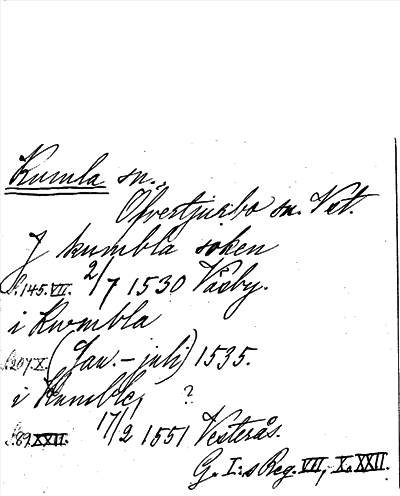 Kumla sn.,
Öfvertjurbo sn. Vstm.
J kumbla soken
S. 145. VII. 2/7 1530 Väsby.
i Kwmbla
S. 207. X. (Jan. – juli) 1535.
i Kumble, ?
S. 89 XXII. 17/2 1551 Vesterås.
G. I:s Reg. VII, X. XXII.